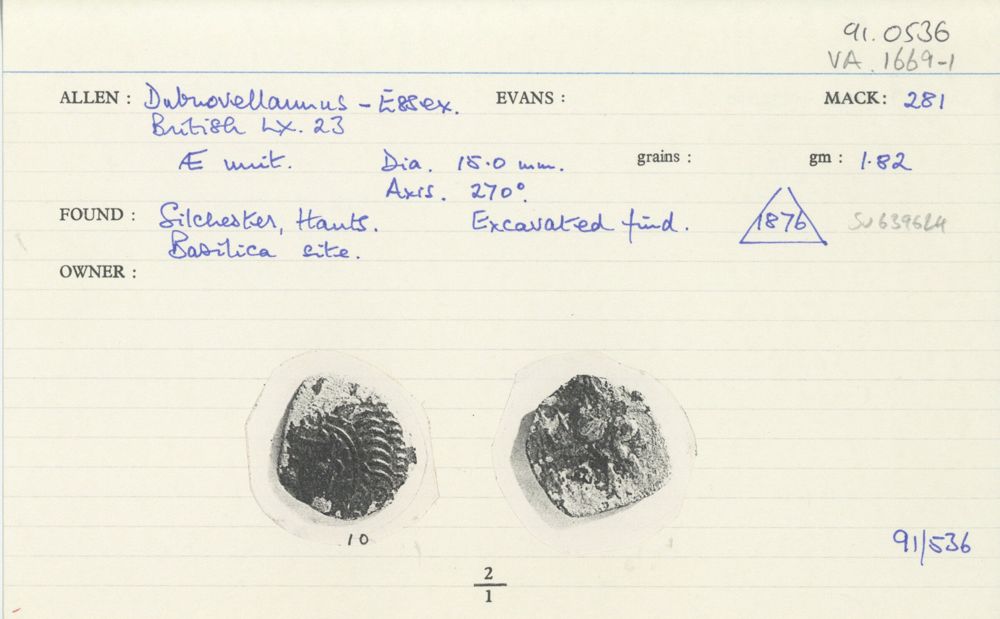 91.0536
VA. 1669-1
ALLEN : Dubnovellaunus - Essex. EVANS : MACK: 281
British LX. 23
Æ unit. Dia. 15.0 mm. grains : gm : 1.82
Axis. 270°.
FOUND : Silchester, Hants. Excavated find. 1876 SU639624
Basilica site.
OWNER :
10
91/536
2
1